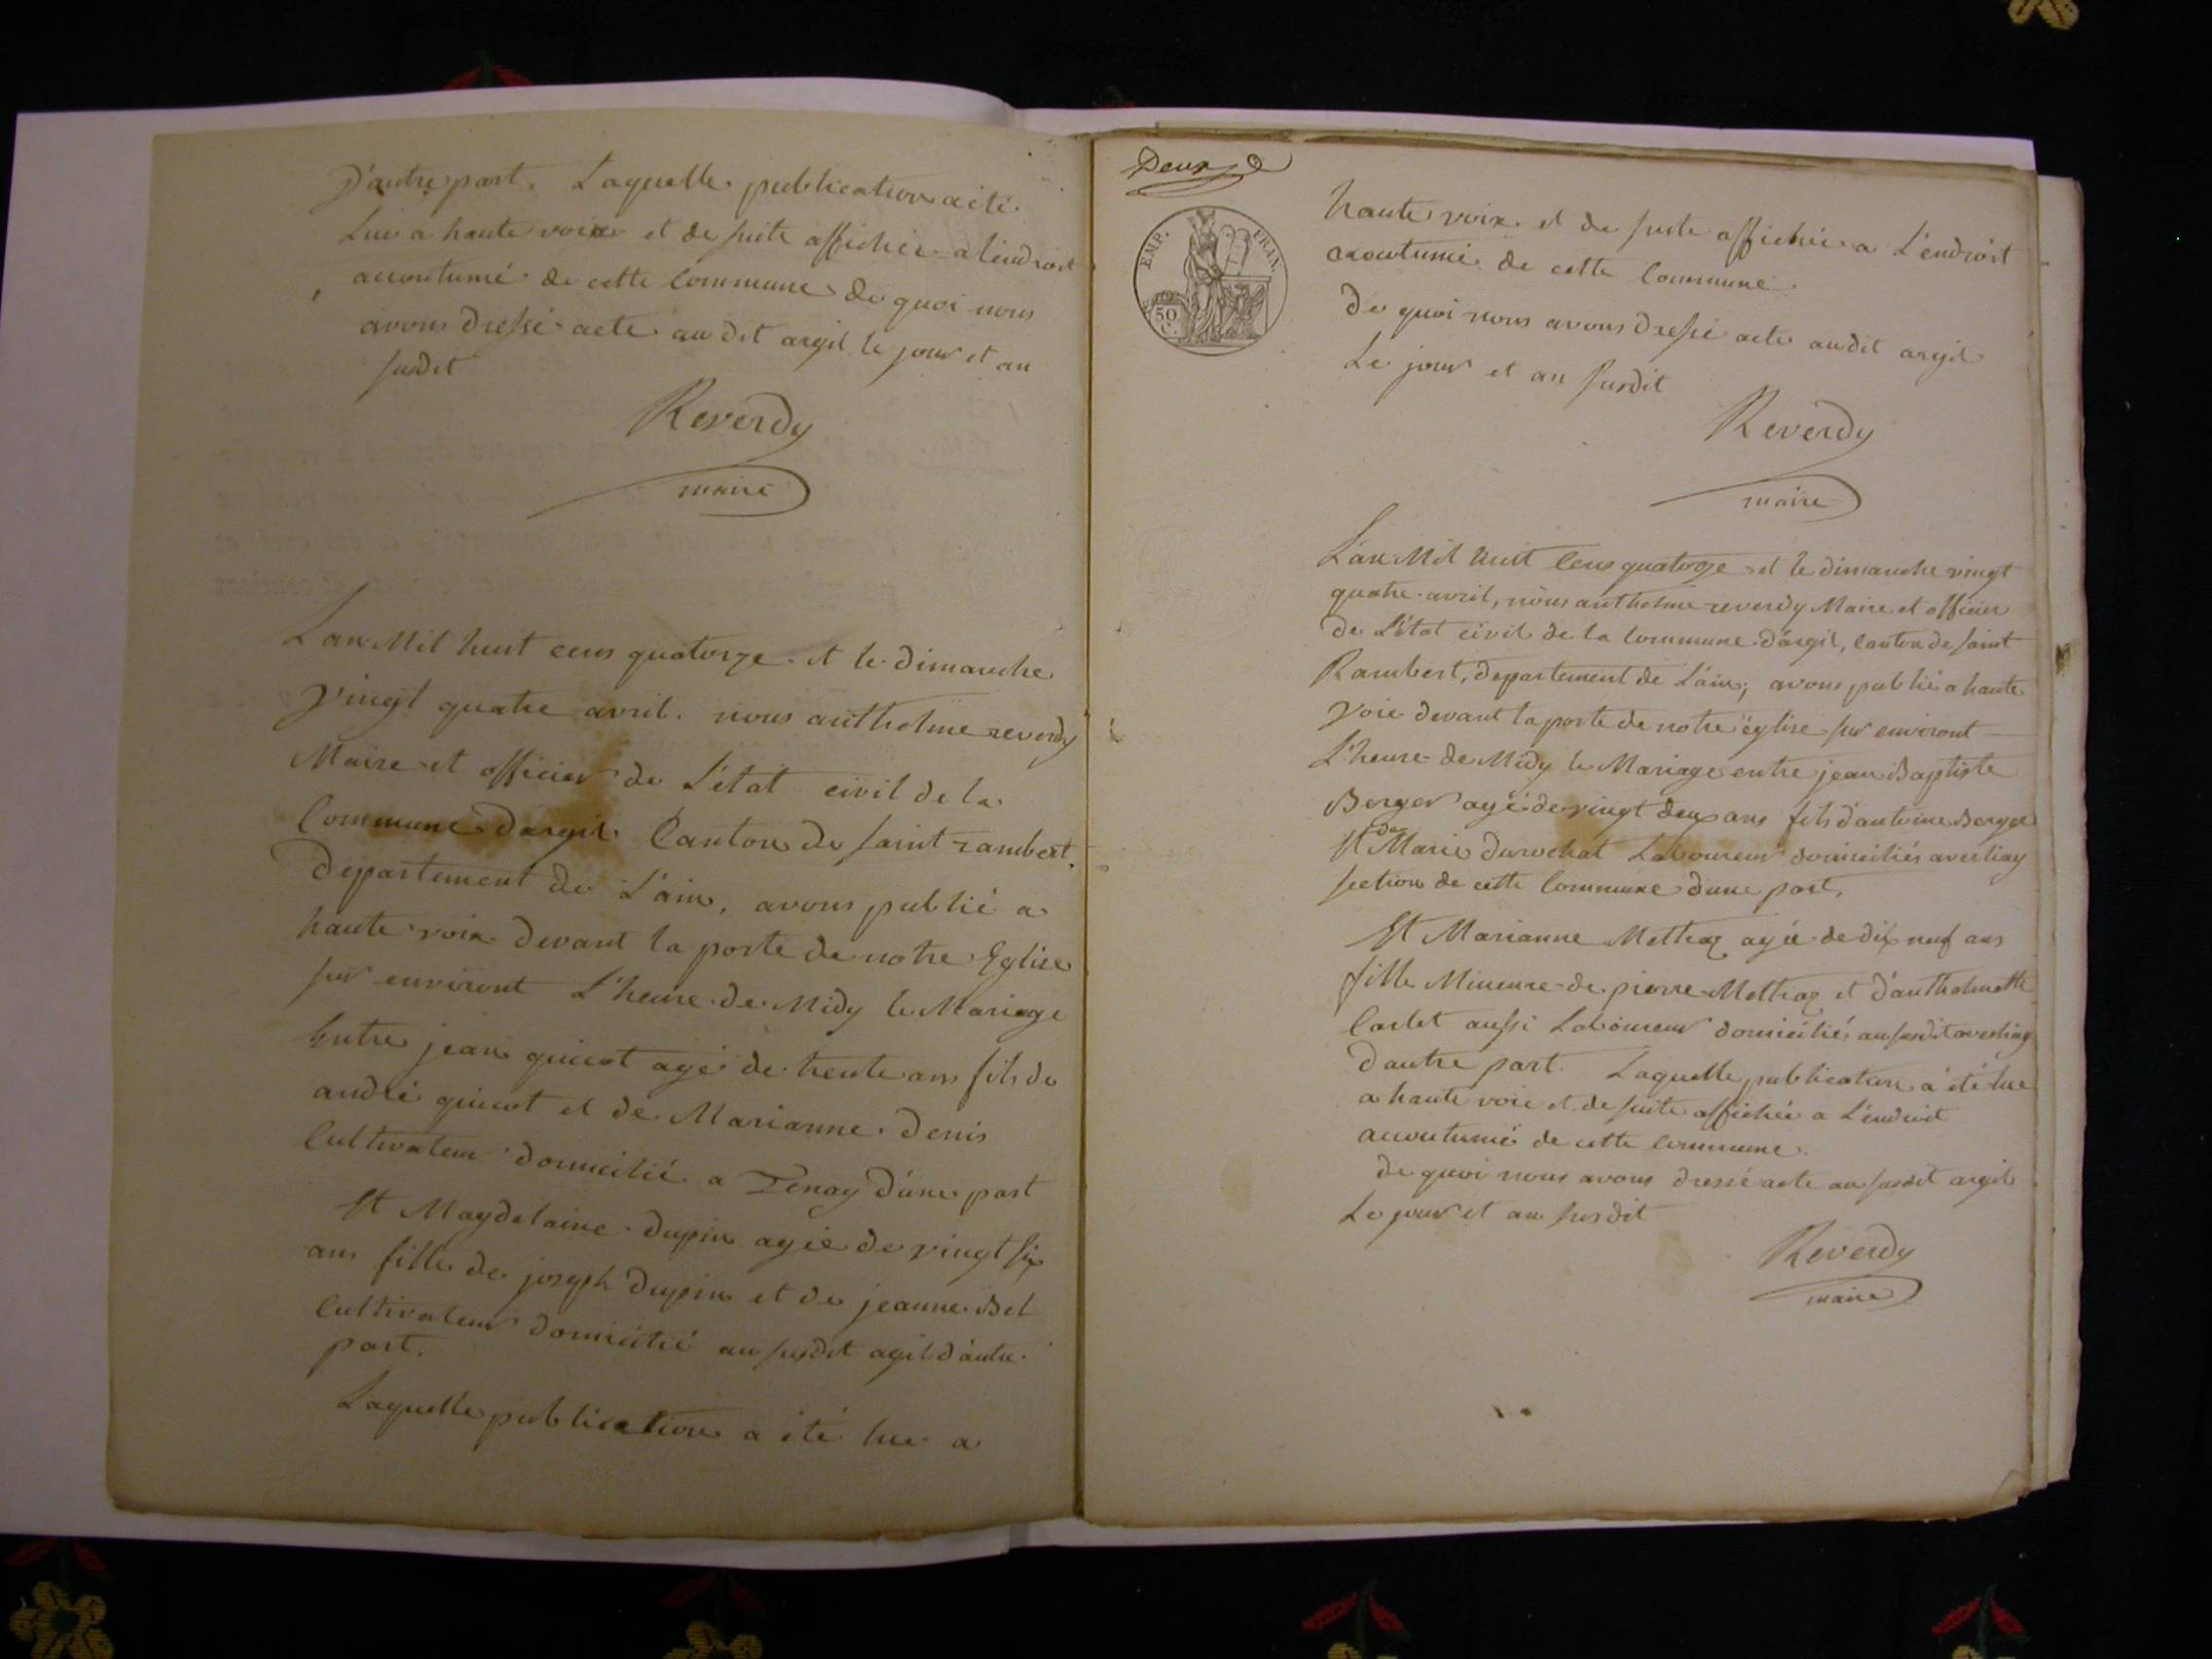 D'autre part. Laquelle publication a été
Lue a haute voix et de suite affichée a l'endroit
accoutumé de cette Commune de quoi nous
avons dressé acte au dit argil le jour et an
susdit
Reverdy
maire
L'an Mil huit cens quatorze et le dimanche
vingt quatre avril. nous anthelme reverdy
Maire et officier de L'état civil de la
Commune d'argil Canton de saint rambert.
Departement de L'ain, avons publié a
haute voix devant la porte de notre Eglise
sur environt L'heure de Midy le Mariage
Entre jean guicot agé de trente ans fils de
andré guicot et de Marianne denis
Cultivateur domicilié a Tenay d'une part
Et Magdelaine dupin agée de vingt six
ans fille de joseph dupin et de jeanne Bel
Cultivateur domicilié au susdit agil d'autre
part.
Laquelle publication a été lue a
Deux
EMP. FRAN.
50
C.
haute voix et de suite affichée a L'endroit
acoutumé de cette Commune.
De quoi nous avons dressé acte audit argil
Le jour et an susdit
Reverdy
maire
L'an Mil huit Cens quatorze et le dimanche vingt
quatre avril, nous anthelme reverdy Maire et officier
de L'état civil de la Commune d'argil, Canton de saint
Rambert, departement de L'ain, avons publié a haute
voie devant la porte de notre église sur environt
L'heure de Midy le Mariage entre jean Baptiste
Berger agé de vingt deux ans fils d'antoine Berger
Et de Marie durochat Laboureur domiciliés averliaz
section de cette Commune d'une part,
Et Marianne Mettraz agée de dix neuf ans
fille Mineure de pierre Mettraz et d'anthelmette
Carlet aussi Laboureur domiciliés au susdit averliaz
d'autre part. Laquelle publication a été lue
a haute voie et de suite affichée a L'endroit
accoutumé de cette commune.
de quoi nous avons dressé acte au susdit argil
Le jour et an susdit
Reverdy
maire